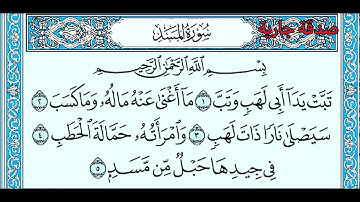 صدقة جارية
سُورَةُ المَسَد
بِسْمِ اللَّهِ الرَّحْمَٰنِ الرَّحِيمِ
تَبَّتْ يَدَا أَبِى لَهَبٍ وَتَبَّ ١ مَا أَغْنَىٰ عَنْهُ مَالُهُۥ وَمَا كَسَبَ ٢
سَيَصْلَىٰ نَارًا ذَاتَ لَهَبٍ ٣ وَٱمْرَأَتُهُۥ حَمَّالَةَ ٱلْحَطَبِ ٤
فِى جِيدِهَا حَبْلٌ مِّن مَّسَدٍۭ ٥